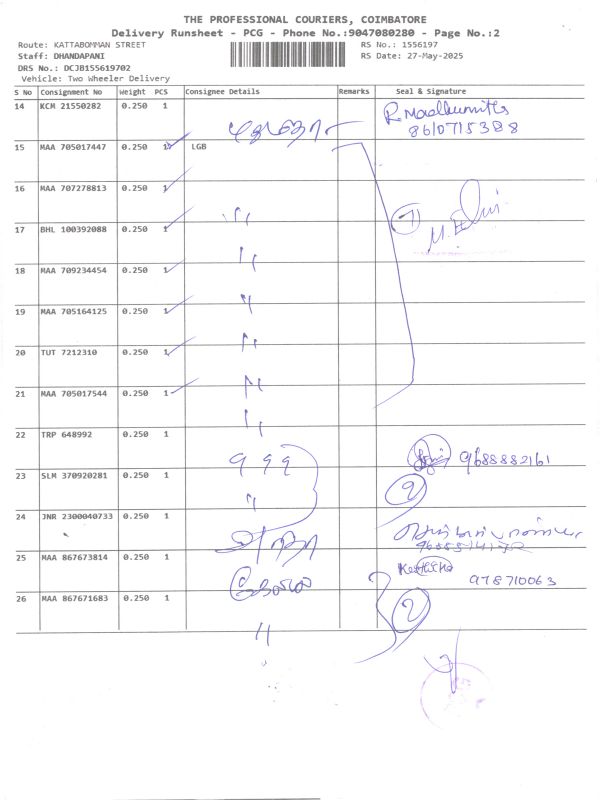 THE PROFESSIONAL COURIERS, COIMBATORE
Delivery Runsheet - PCG - Phone No.:9047080280 - Page No.:2
Route: KATTABOMMAN STREET
RS No.: 1556197
Staff: DHANDAPANI
RS Date: 27-May-2025
DRS No.: DCJB155619702
Vehicle: Two Wheeler Delivery
S No Consignment No Weight PCS Consignee Details Remarks Seal & Signature
14 KCM 21550282 0.250 1 R. Madhumitha
8610715388
15 MAA 705017447 0.250 1 LGB
16 MAA 707278813 0.250 1
"
17 BHL 100392088 0.250 1 7
"
18 MAA 709234454 0.250 1
"
19 MAA 705164125 0.250 1
"
20 TUT 7212310 0.250 1
"
21 MAA 705017544 0.250 1
"
22 TRP 648992 0.250 1
9688882161
23 SLM 370920281 0.250 1 2
"
24 JNR 2300040733 0.250 1
25 MAA 867673814 0.250 1 Keerthika
978710063
26 MAA 867671683 0.250 1 2
"